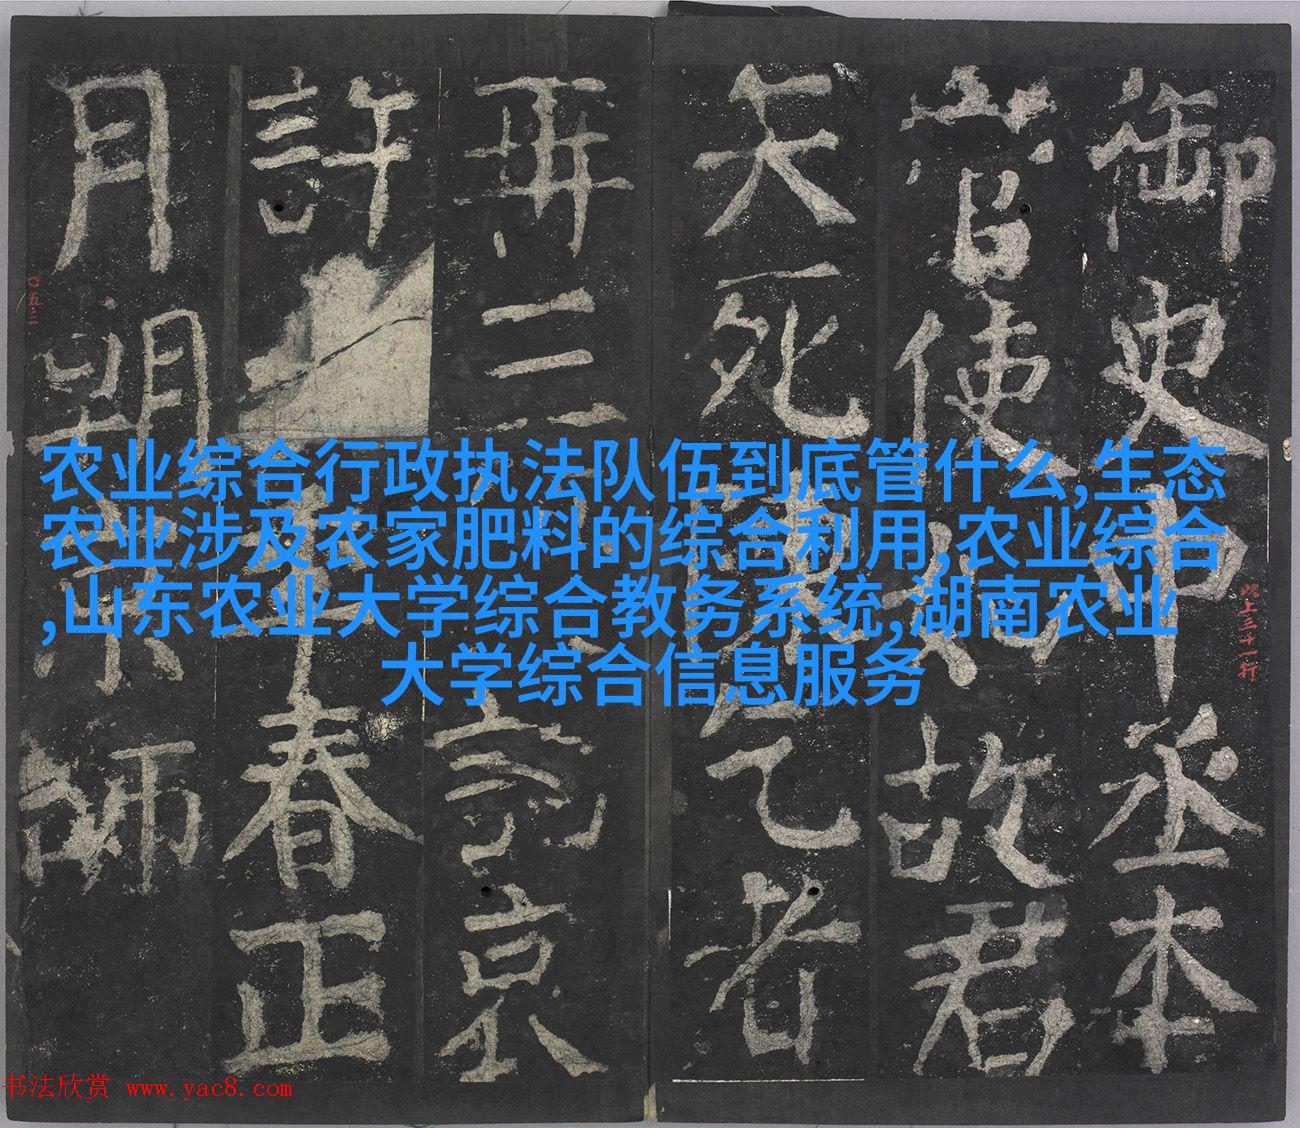 农业综合行政执法队伍到底管什么,生态
农业涉及农家肥料的综合利用,农业综合
,山东农业大学综合教务系统,湖南农业
大学综合信息服务
御史中丞本
官使如故君
矢死乞者
再三京
許春正
月朔京師
此上三十一行
〇五二
书法欣赏 www.yac8.com